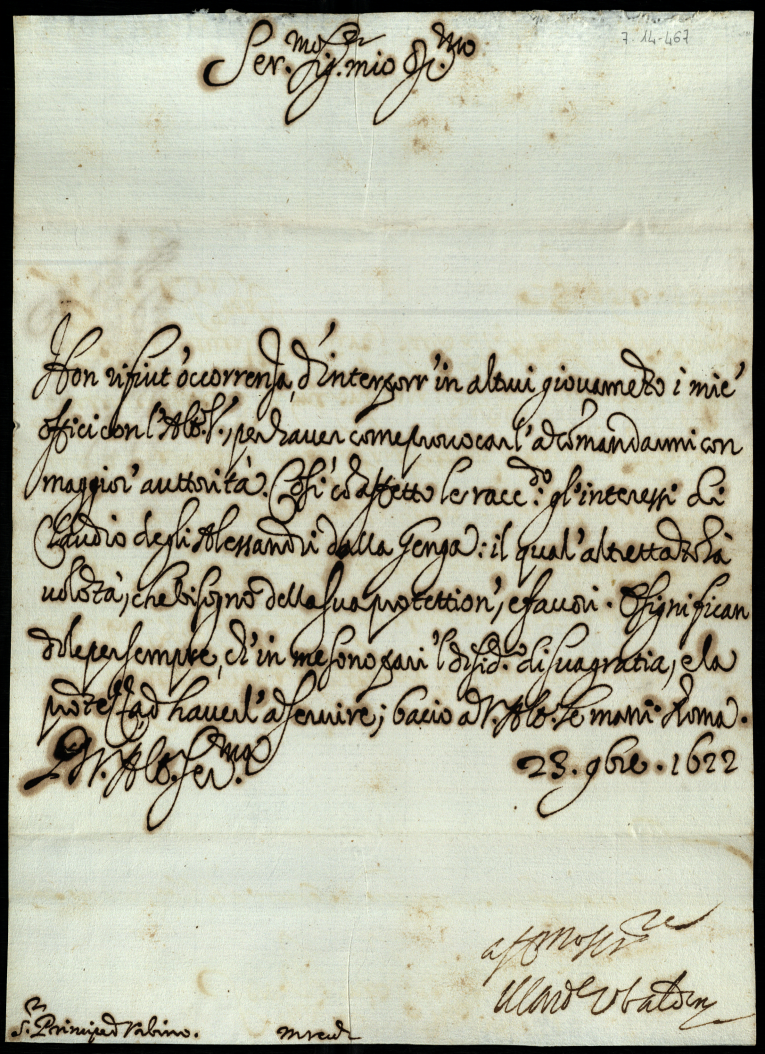 7. 14-467
Ser.mo Sig.r mio Oss.mo
Non rifiut'occorrenza, d'interporr'in altrui giovamēto i miei
offici con l'Alt.V., per haver come provocarl'a cōmandarmi con
maggior'auttorità. Così cō affetto le racc.do gl'interessi di
Claudio degli Alessandri dalla Genga: il qual'altrettāto hà
volōtà, che bisogno della sua protettion', e favori. E significan
dole per sempre, ch'in me sono pari 'l desid.o di sua gratia, e la
prōtezza ad haverl'a servire; bacio a V. Alt. le mani. Roma.
23. 9bre. 1622
D V. Alt. Ser.ma
aff.mo ser.re
Il Card.l Ubaldin
S.r Principe d'Urbino.